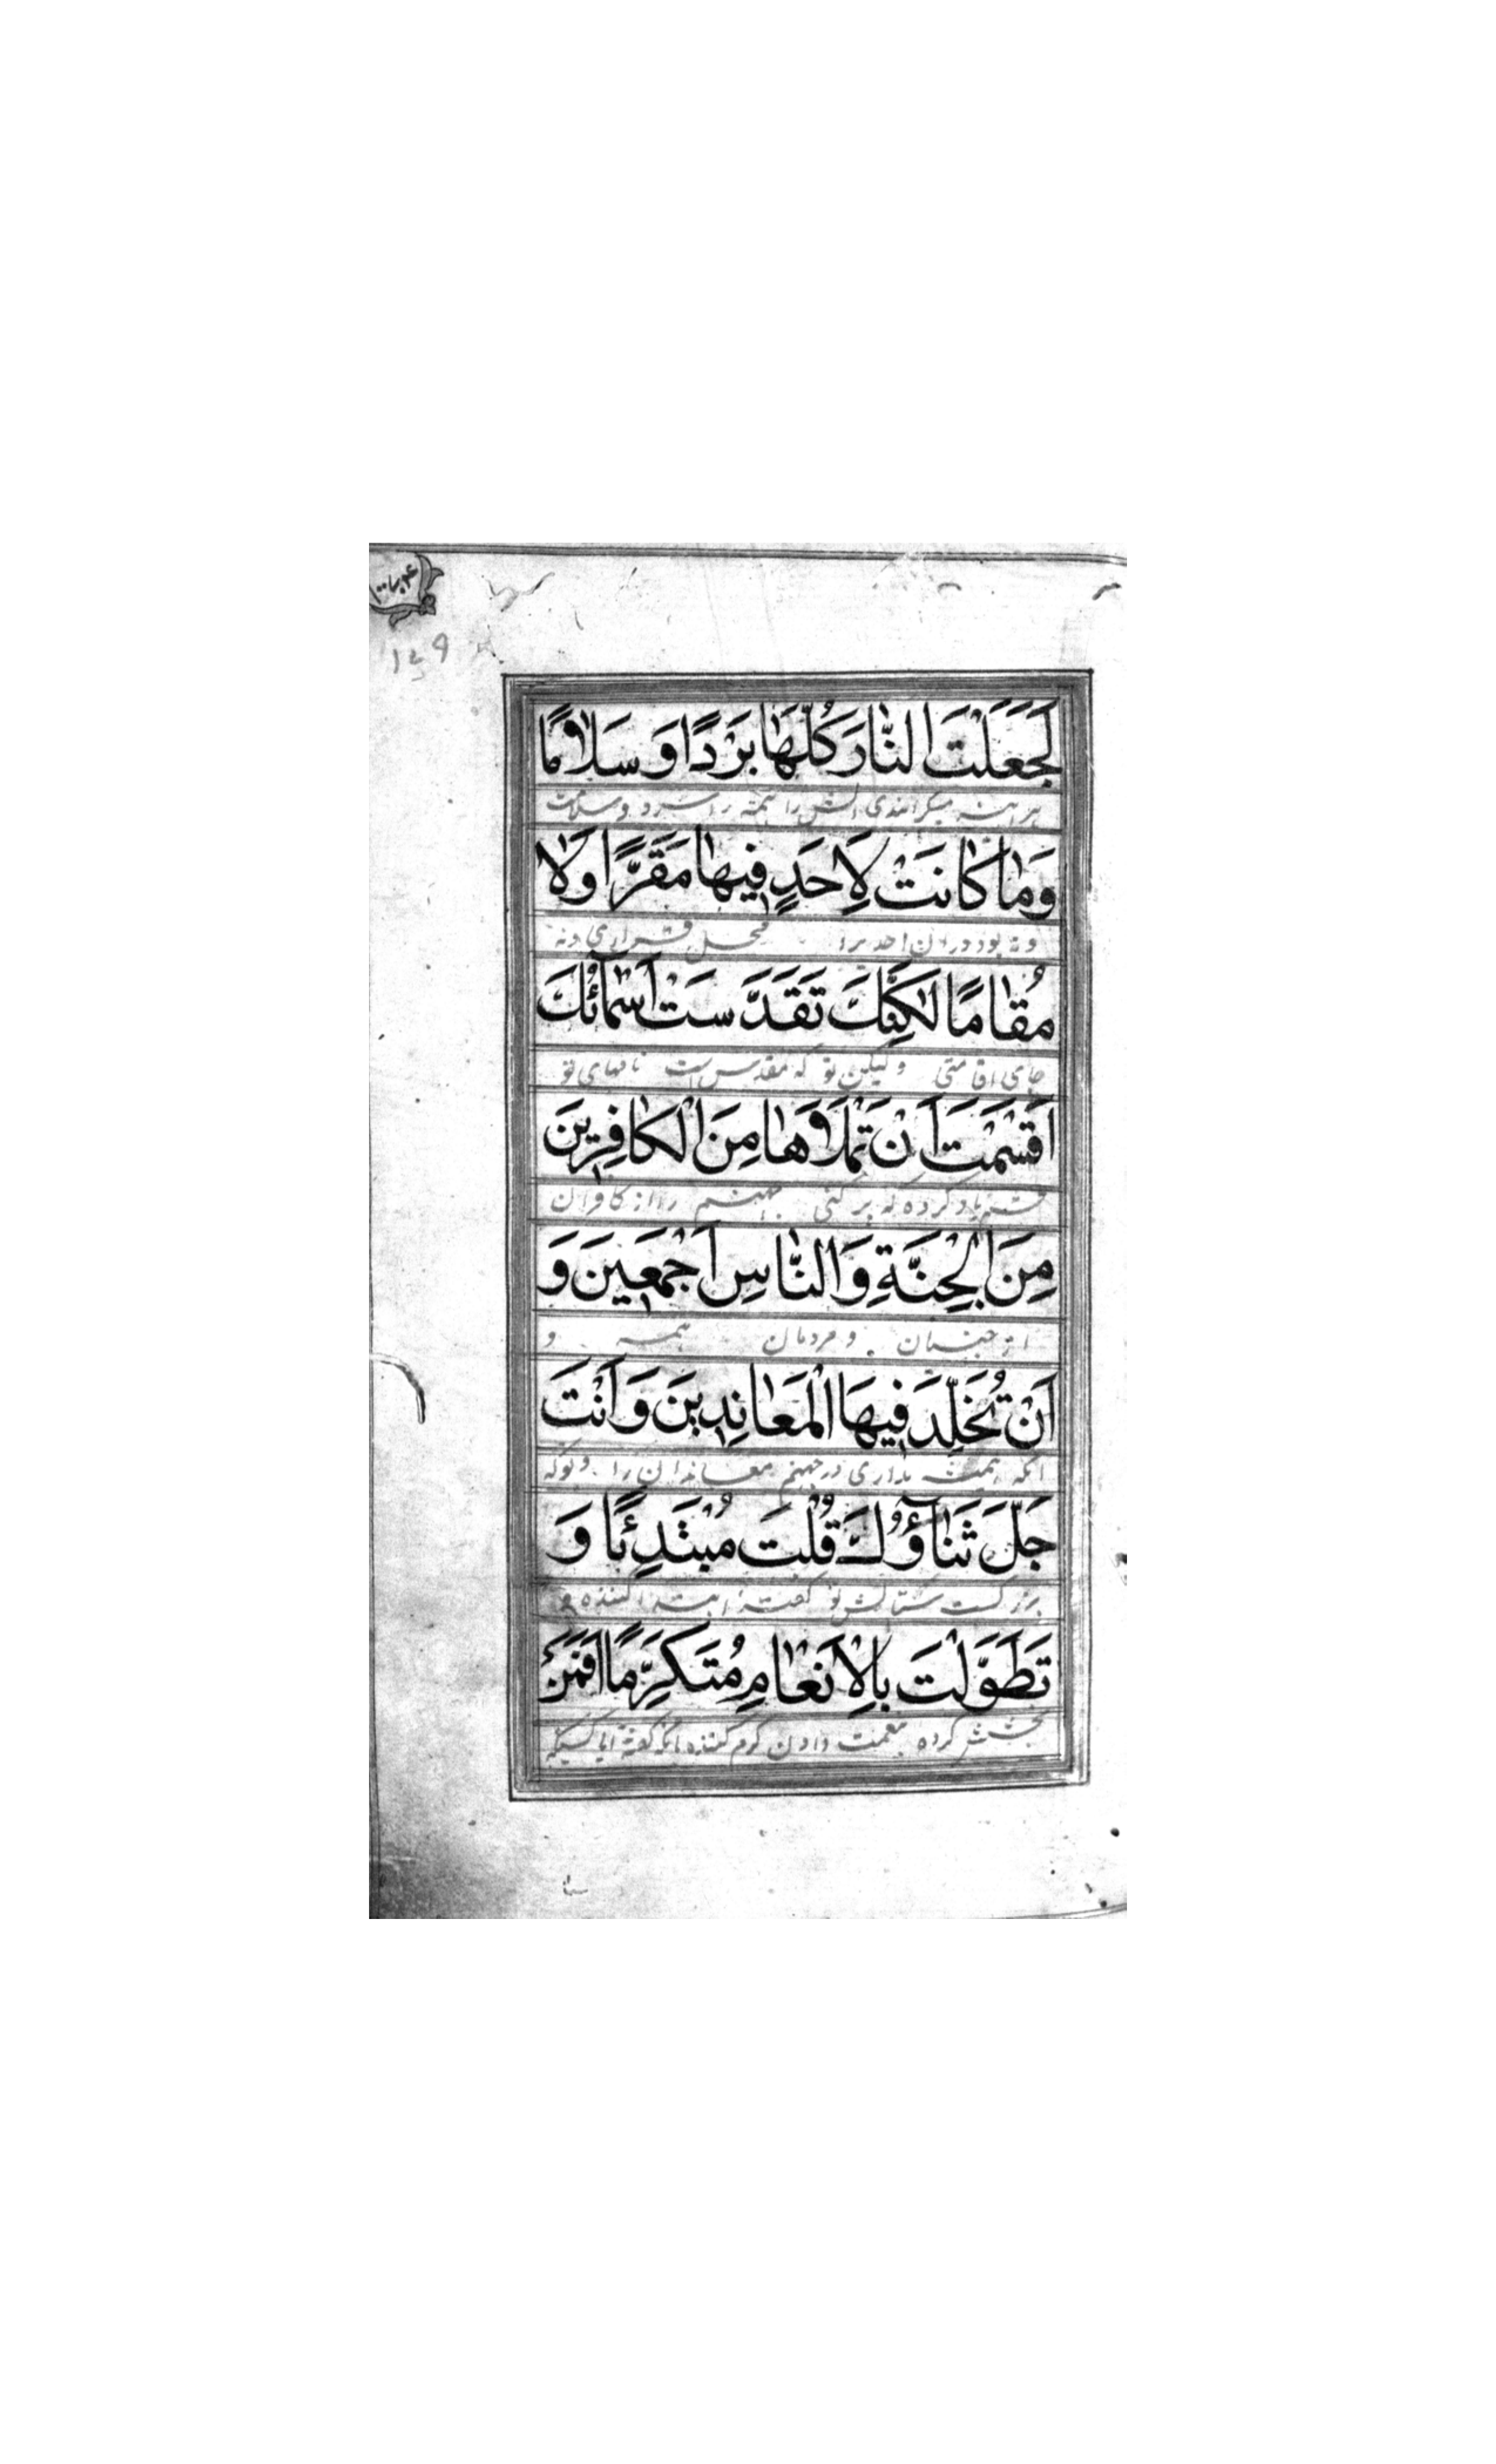 ۱۴۹
لَجَعَلْتَ النَّارَ كُلَّهَا بَرْدًا وَسَلَامًا
هر اینه میگردانیدی آتش را همه را سرد و سلامت
وَمَا كَانَتْ لِأَحَدٍ فِيهَا مَقَرًّا وَلَا
و نه بود در آن احدیرا محل قراری و نه
مُقَامًا لَكِنَّكَ تَقَدَّسَتْ أَسْمَائُكَ
جای اقامتی و لیکن تو که مقدس است نامهای تو
أَقْسَمْتَ أَنْ تَمْلَأَهَا مِنَ الْكَافِرِينَ
قسم یاد کرده که پر کنی جهنم را از کافران
مِنَ الْجِنَّةِ وَالنَّاسِ أَجْمَعِينَ وَ
از جنیان و مردمان همه و
أَنْ تُخَلِّدَ فِيهَا الْمُعَانِدِينَ وَأَنْتَ
انکه همیشه بداری در جهنم معاندان را و توکه
جَلَّ ثَنَاؤُكَ قُلْتَ مُبْتَدِئًا وَ
بزرگست ستایش تو گفته ابتدا کننده و
تَطَوَّلْتَ بِالْإِنْعَامِ مُتَكَرِّمًا أَفَمَنْ
بخشش کرده بنعمت دادن کرم کننده انکه گفته ایا کسیکه